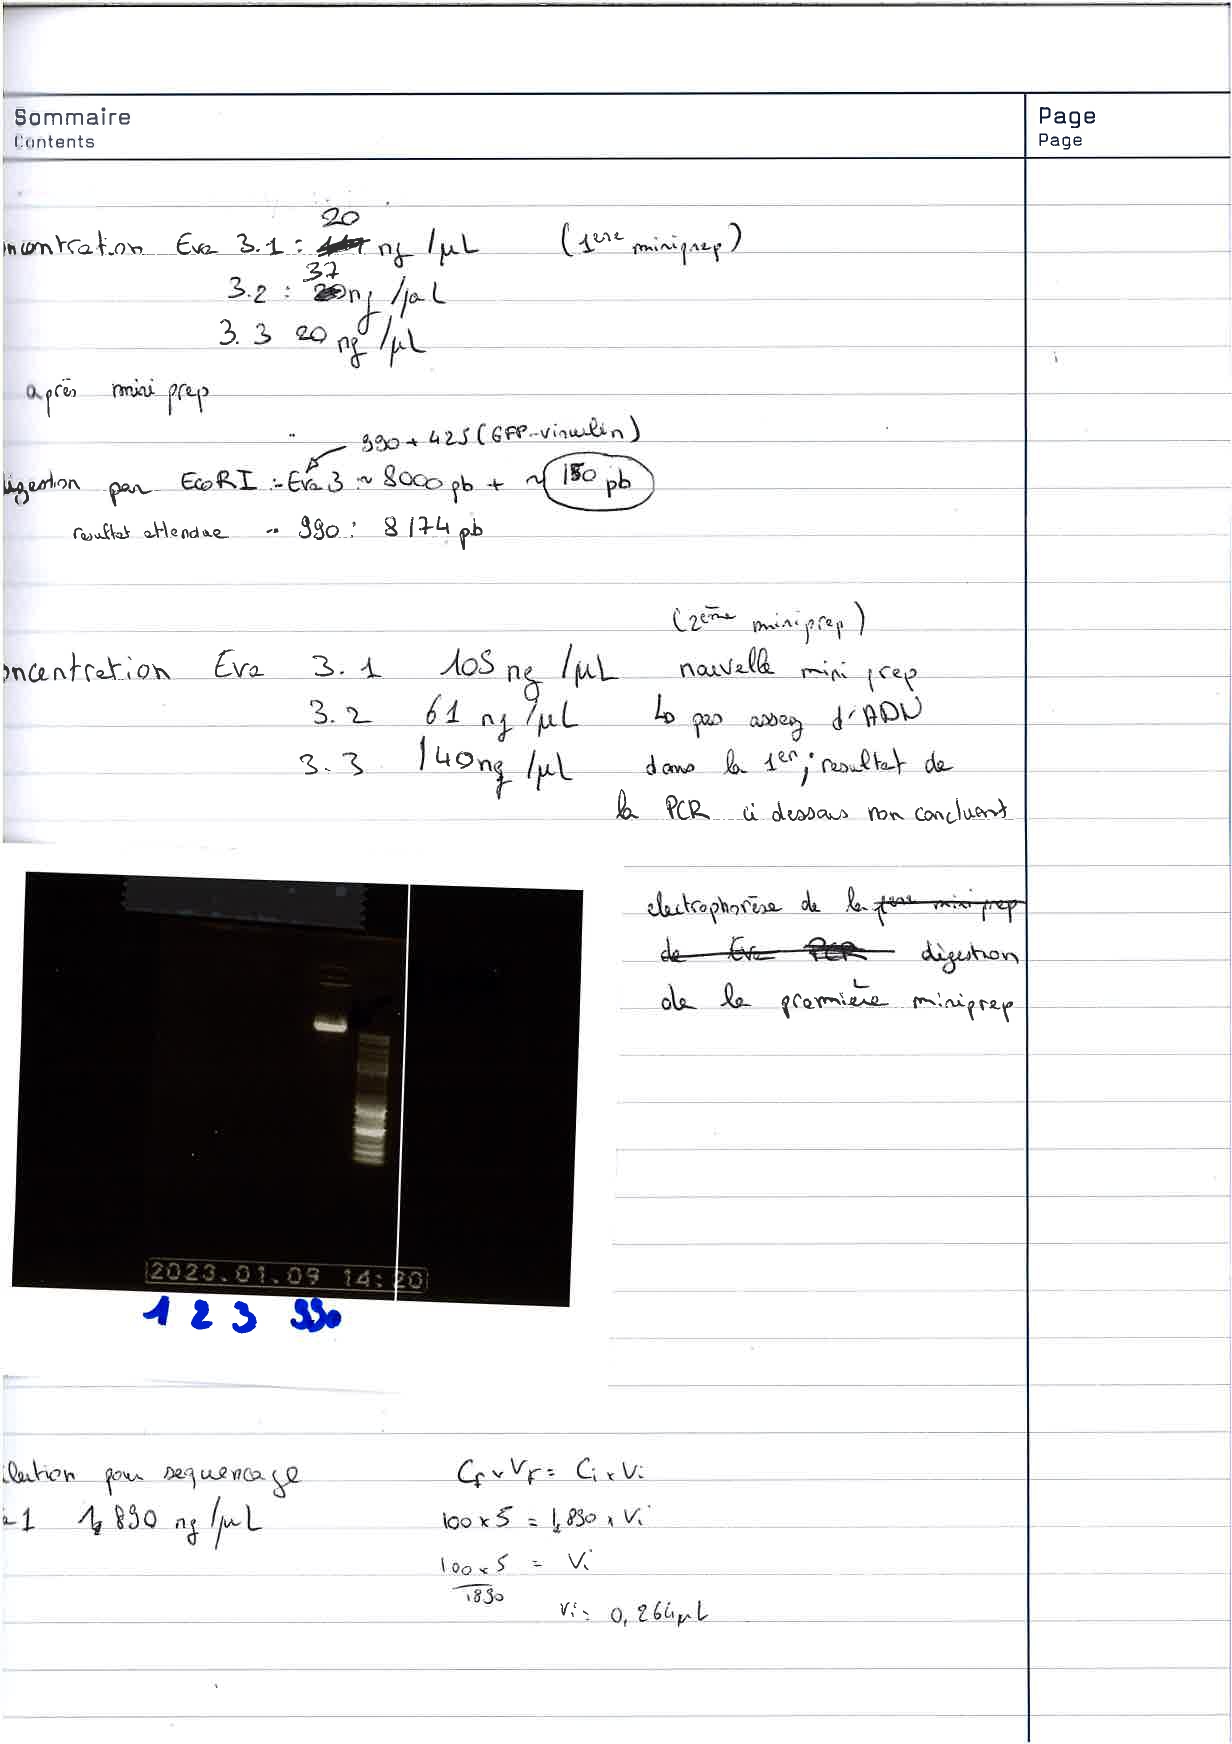 Sommaire
Contents
Page
Page
ncontration Eva 3.1 : 20 ng /µL (1ere miniprep)
3.2 : 37 ng /µL
3.3 20 ng /µL
après mini prep
990 + 425 (GFP-vinculin)
igestion par EcoRI :- Eva 3 ~ 8000 pb + ~ 150 pb
resultat attendue - 990 : 8174 pb
(2ème miniprep)
oncentration Eva 3.1 105 ng /µL nouvelle mini prep
3.2 61 ng /µL ↳ pas assez d'ADN
3.3 140 ng /µL dans la 1er, resultat de
la PCR ci dessous non concluant
electrophorèse de la 1ere mini prep
de Eva PCR digestion
de la première miniprep
2023.01.09 14:20
1 2 3 990
ilution pour sequencage Cf x Vf = Ci x Vi
1 1,890 ng/µL 100 x 5 = 1,890 x Vi
100 x 5 = Vi
1890
Vi = 0,264µL